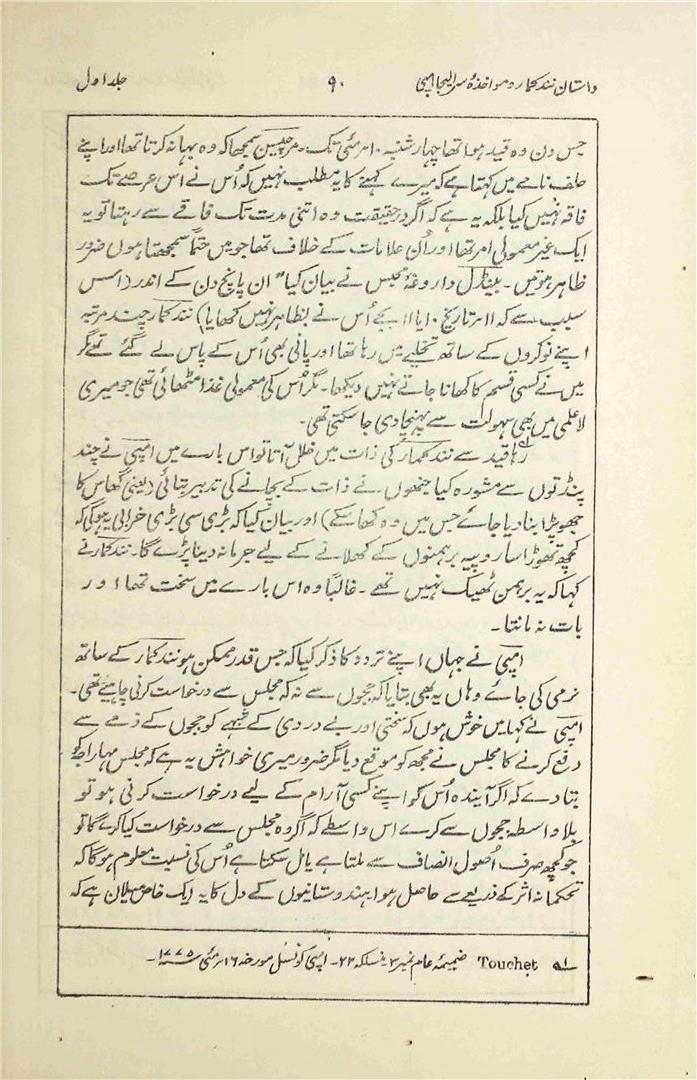 داستان نند کمار و مواخذۂ سر الیجا امپی ۹۰ جلد اول
جس دن وہ قید ہوا تھا چہار شنبہ ۱۰ مئی تک۔ مرچیسن سمجھا کہ وہ بہانہ کرتا تھا اور اپنے
حلف نامے میں کہتا ہے کہ میرے کہنے کا یہ مطلب نہیں کہ اُس نے اس عرصے تک
فاقہ نہیں کیا بلکہ یہ ہے کہ اگر درحقیقت وہ اتنی مدت تک فاقے سے رہتا تو یہ
ایک غیر معمولی امر تھا اور اُن علامات کے خلاف تھا جو میں حتماً سمجھتا ہوں ضرور
ظاہر ہوتیں۔ بینڈل داروغۂ محبس نے بیان کیا " ان پانچ دن کے اندر (اس
سبب سے کہ ۱۱ تاریخ ۱۰ یا ۱۱ بجے اُس نے بظاہر نہیں کھایا) نند کمار چند مرتبہ
اپنے نوکروں کے ساتھ تخلیے میں رہا تھا اور پانی بھی اُس کے پاس لے گئے تھے مگر
میں نے کسی قسم کا کھانا جاتے نہیں دیکھا۔ مگر اُس کی معمولی غذا مٹھائی تھی جو میری
لاعلمی میں بھی سہولت سے پہنچا دی جا سکتی تھی۔
آیا قید سے نند کمار کی ذات میں خلل آتا تو اس بارے میں امپی نے چند
پنڈتوں سے مشورہ کیا جنھوں نے ذات کے بچانے کی تدبیر بتائی (یعنی گھاس کا
جھوپڑا بنا دیا جائے جس میں وہ کھا سکے) اور بیان کیا کہ بڑی سی بڑی خرابی یہ ہوگی کہ
کچھ تھوڑا سا روپیہ برہمنوں کے کھلانے کے لیے جرمانہ دینا پڑے گا۔ نند کمار نے
کہا کہ یہ برہمن ٹھیک نہیں تھے۔ غالباً وہ اس بارے میں سخت تھا اور
بات نہ مانتا۔
امپی نے جہاں اپنے تردد کا ذکر کیا کہ جس قدر ممکن ہو نند کمار کے ساتھ
نرمی کی جائے وہاں یہ بھی بتایا کہ ججوں سے نہ کہ مجلس سے درخواست کرنی چاہیے تھی۔
امپی نے کہا میں خوش ہوں کہ سختی اور بے دردی کے شبہے کو ججوں کے ذمے سے
دفع کرنے کا مجلس نے مجھ کو موقع دیا مگر ضرور میری خواہش یہ ہے کہ مجلس مہاراجہ کو
بتا دے کہ اگر آیندہ اُس کو اپنے کسی آرام کے لیے درخواست کرنی ہو تو
بلا واسطہ ججوں سے کرے اس واسطے کہ اگر وہ مجلس سے درخواست کیا کرے گا تو
جو کچھ صرف اُصول انصاف سے ملتا ہے یا مل سکتا ہے اُس کی نسبت معلوم ہوگا کہ
تحکمانہ اثر کے ذریعے سے حاصل ہوا ہندوستانیوں کے دل کا یہ ایک خاص میلان ہے کہ
۱؎ Touchet ضمیمۂ عام نمبر ۳ منسلکہ ۲۲۔ امپی کونسل مورخہ ۱۶ مئی ۱۷۷۵ء۔